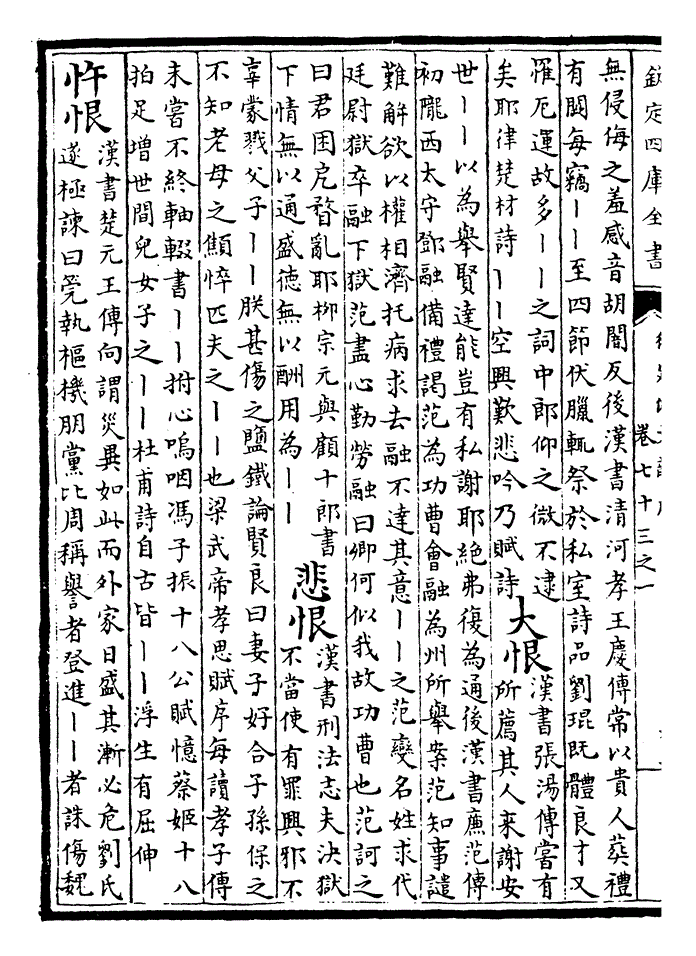 欽定四庫全書
卷七十三之一
無侵侮之羞感音胡闇反後漢書清河孝王慶傳常以貴人葬禮
有闕每竊丨丨至四節伏臘輒祭於私室詩品劉琨既體良才又
罹厄運故多丨丨之詞中郎仰之微不逮
矣耶律楚材詩丨丨空興歎悲吟乃賦詩
大恨
漢書張湯傳嘗有
所薦其人来謝安
世丨丨以為舉賢達能豈有私謝耶絶弗復為通後漢書廉范傳
初隴西太守鄧融備禮謁范為功曹會融為州所舉案范知事譴
難解欲以權相濟托病求去融不達其意丨丨之范變名姓求代
廷尉獄卒融下獄范盡心勤勞融曰卿何似我故功曹也范訶之
曰君困厄瞀亂耶柳宗元與顧十郎書
下情無以通盛徳無以酬用為丨丨
悲恨
漢書刑法志夫決獄
不當使有罪興邪不
辜蒙戮父子丨丨朕甚傷之鹽鐵論賢良曰妻子好合子孫保之
不知老母之顦悴匹夫之丨丨也梁武帝孝思賦序每讀孝子傳
未嘗不終軸輟書丨丨拊心嗚咽馮子振十八公賦憶蔡姬十八
拍足增世間兒女子之丨丨杜甫詩自古皆丨丨浮生有屈伸
忤恨
漢書楚元王傳向謂災異如此而外家日盛其漸必危劉氏
遂極諫曰筦執樞機朋黨比周稱譽者登進丨丨者誅傷魏